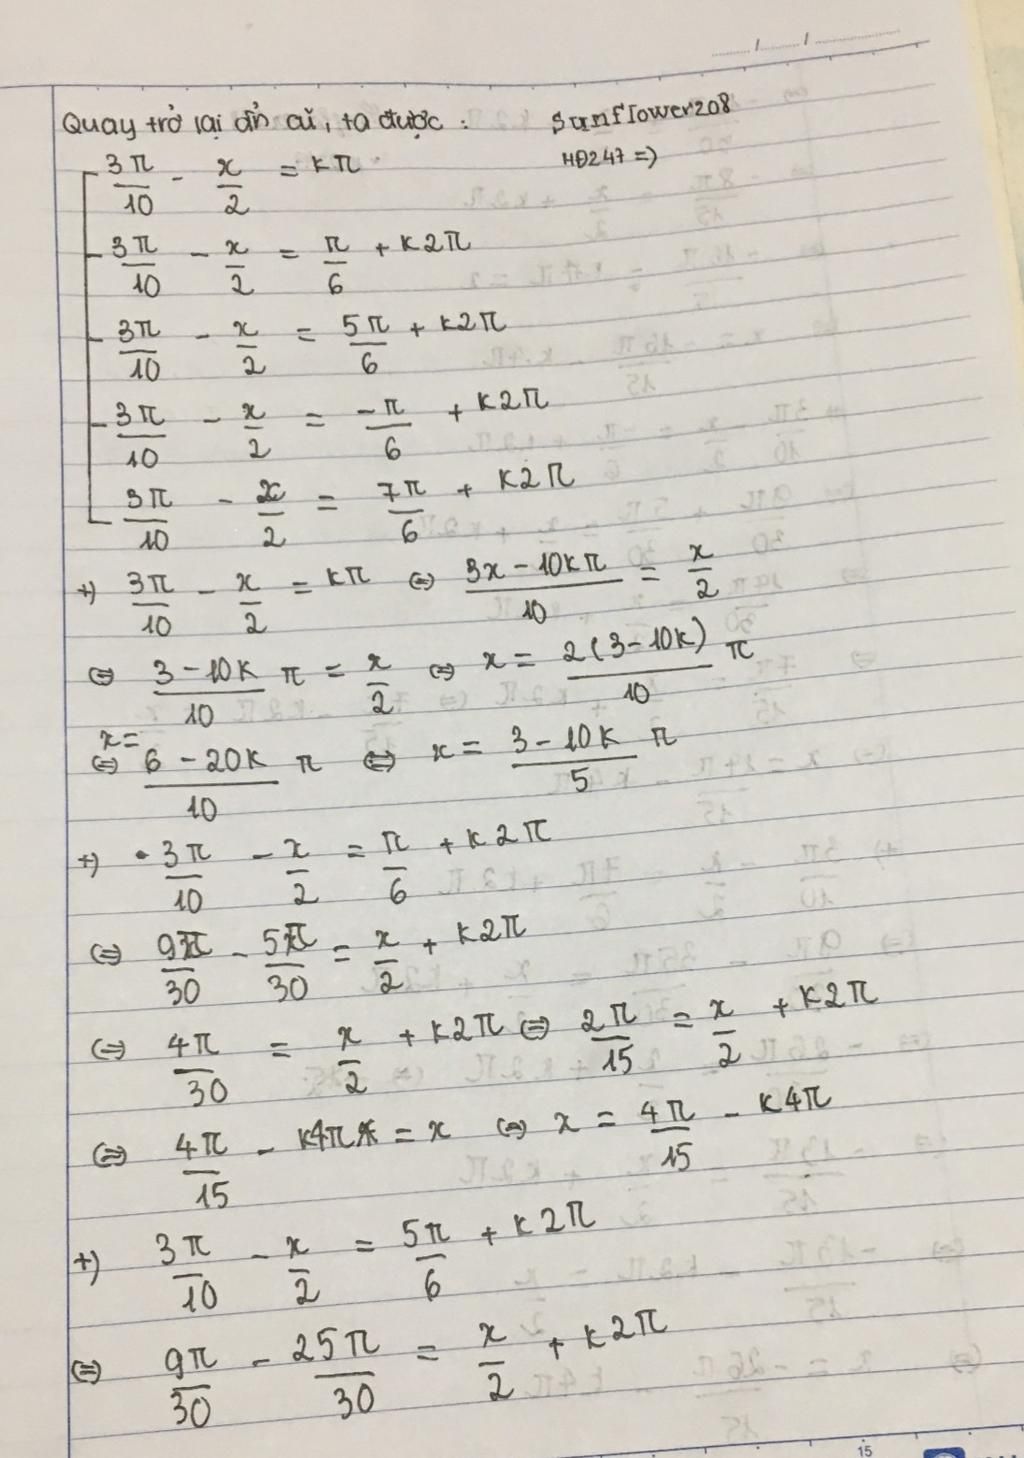 Quay trở lại ẩn cũ, ta được : Sunflower208
HĐ247 =)
3π/10 - x/2 = kπ
3π/10 - x/2 = π/6 + k2π
3π/10 - x/2 = 5π/6 + k2π
3π/10 - x/2 = -π/6 + k2π
3π/10 - x/2 = 7π/6 + k2π
+) 3π/10 - x/2 = kπ ⇔ (3x - 10kπ)/10 = x/2
⇔ (3 - 10k)/10 π = x/2 ⇔ x = 2(3 - 10k)/10 π
⇔ x = (6 - 20k)/10 π ⇔ x = (3 - 10k)/5 π
+) 3π/10 - x/2 = π/6 + k2π
⇔ 9π/30 - 5π/30 = x/2 + k2π
⇔ 4π/30 = x/2 + k2π ⇔ 2π/15 = x/2 + k2π
⇔ 4π/15 - k4π = x ⇔ x = 4π/15 - k4π
+) 3π/10 - x/2 = 5π/6 + k2π
⇔ 9π/30 - 25π/30 = x/2 + k2π
15